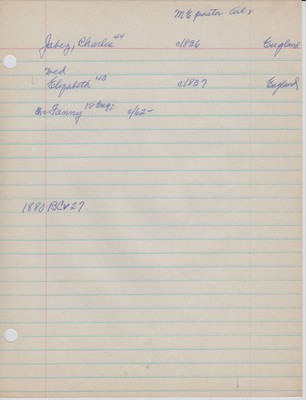 ME pastor
Jabez, Charles 44 c1836 England
wed
Elizabeth 43 c1837 England
ch: Fanny 18 Eng: c/62-
1880 BC 27